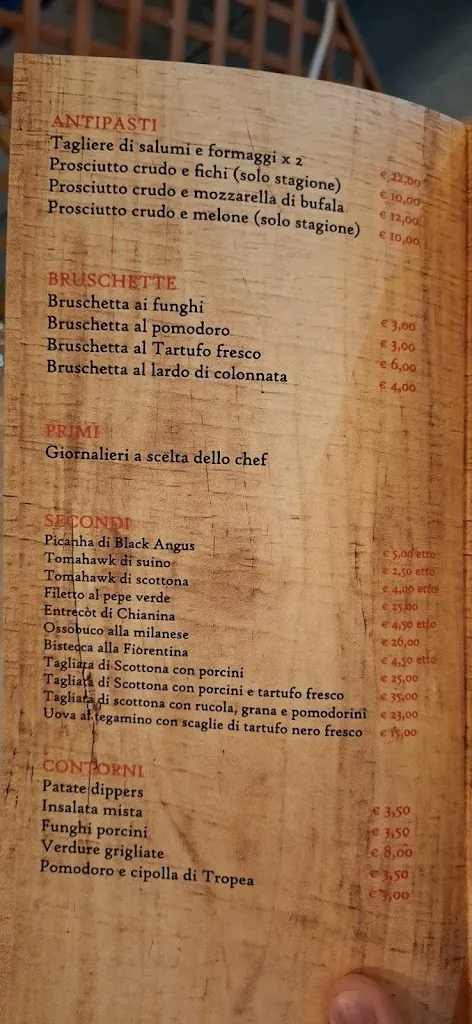 ANTIPASTI
Tagliere di salumi e formaggi x 2 € 22,00
Prosciutto crudo e fichi (solo stagione) € 10,00
Prosciutto crudo e mozzarella di bufala € 12,00
Prosciutto crudo e melone (solo stagione) € 10,00
BRUSCHETTE
Bruschetta ai funghi € 3,00
Bruschetta al pomodoro € 3,00
Bruschetta al Tartufo fresco € 6,00
Bruschetta al lardo di colonnata € 4,00
PRIMI
Giornalieri a scelta dello chef
SECONDI
Picanha di Black Angus € 5,00 etto
Tomahawk di suino € 2,50 etto
Tomahawk di scottona € 4,00 etto
Filetto al pepe verde € 25,00
Entrecòt di Chianina € 4,50 etto
Ossobuco alla milanese € 26,00
Bistecca alla Fiorentina € 4,50 etto
Tagliata di Scottona con porcini € 25,00
Tagliata di Scottona con porcini e tartufo fresco € 35,00
Tagliata di scottona con rucola, grana e pomodorini € 23,00
Uova al tegamino con scaglie di tartufo nero fresco € 15,00
CONTORNI
Patate dippers € 3,50
Insalata mista € 3,50
Funghi porcini € 8,00
Verdure grigliate € 3,50
Pomodoro e cipolla di Tropea € 3,00